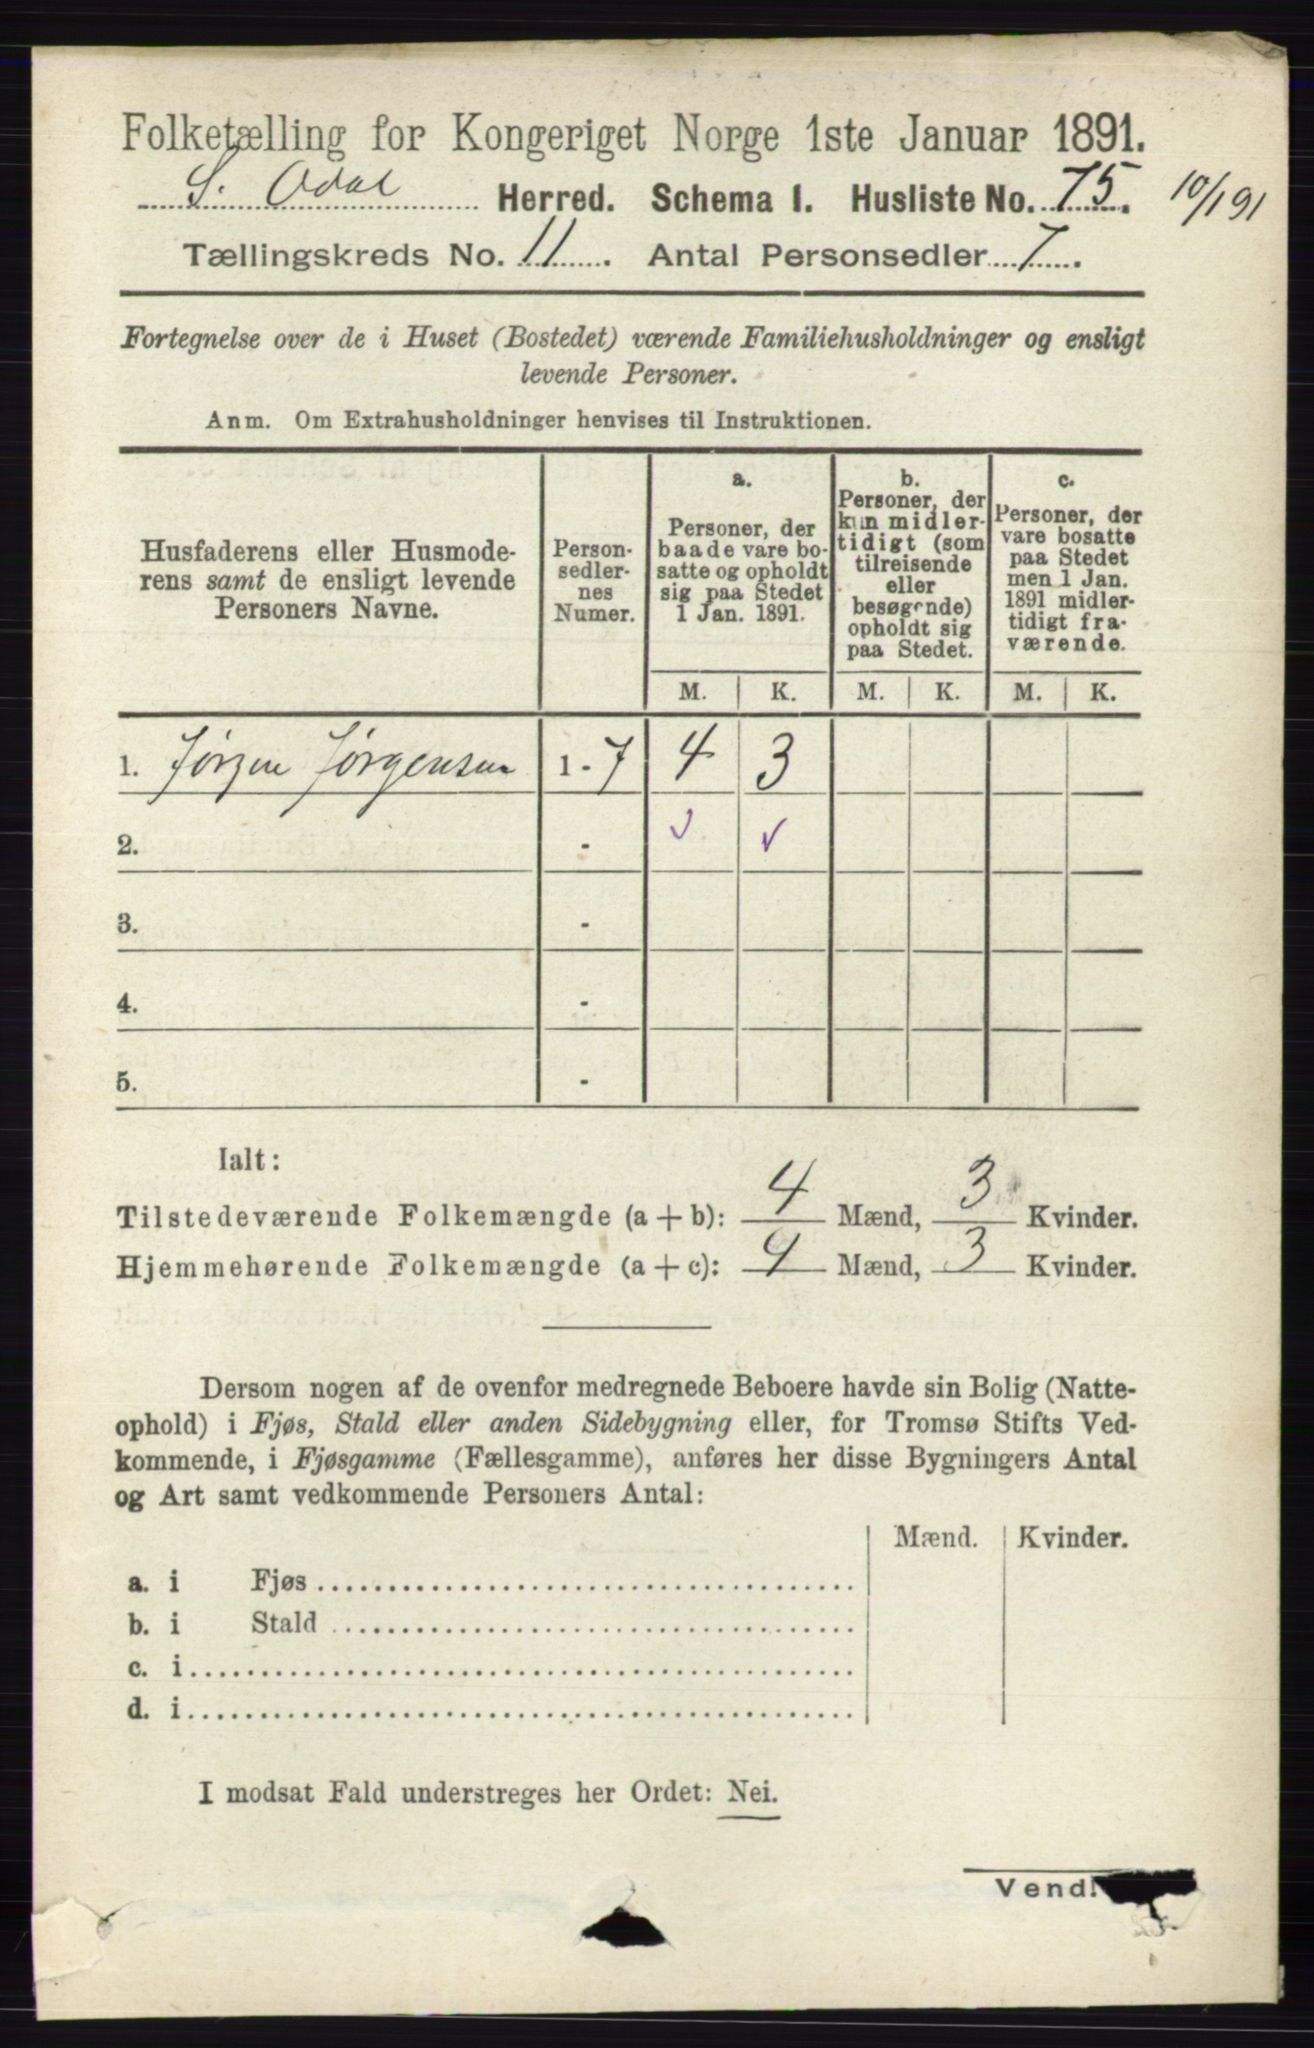 Folketælling for Kongeriget Norge 1ste Januar 1891.
S. Odal Herred. Schema 1. Husliste No. 75. 10/1 91
Tællingskreds No. 11. Antal Personsedler 7.
Fortegnelse over de i Huset (Bostedet) værende Familiehusholdninger og ensligt
levende Personer.
Anm. Om Extrahusholdninger henvises til Instruktionen.
Husfaderens eller Husmode-
rens samt de ensligt levende
Personers Navne.
Person-
sedler-
nes
Numer.
a.
Personer, der
baade vare bo-
satte og opholdt
sig paa Stedet
1 Jan. 1891.
b.
Personer, der
kun midler-
tidigt (som
tilreisende
eller
besøgende)
opholdt sig
paa Stedet.
c.
Personer, der
vare bosatte
paa Stedet
men 1 Jan.
1891 midler-
tidigt fra-
værende.
M. K. M. K. M. K.
1. Jørgen Jørgensen 1-7 4 3
2. -
3. -
4. -
5. -
Ialt:
Tilstedeværende Folkemængde (a + b): 4 Mænd, 3 Kvinder.
Hjemmehørende Folkemængde (a + c): 4 Mænd, 3 Kvinder.
Dersom nogen af de ovenfor medregnede Beboere havde sin Bolig (Natte-
ophold) i Fjøs, Stald eller anden Sidebygning eller, for Tromsø Stifts Ved-
kommende, i Fjøsgamme (Fællesgamme), anføres her disse Bygningers Antal
og Art samt vedkommende Personers Antal:
Mænd. Kvinder.
a. i Fjøs
b. i Stald
c. i
d. i
I modsat Fald understreges her Ordet: Nei.
Vend!